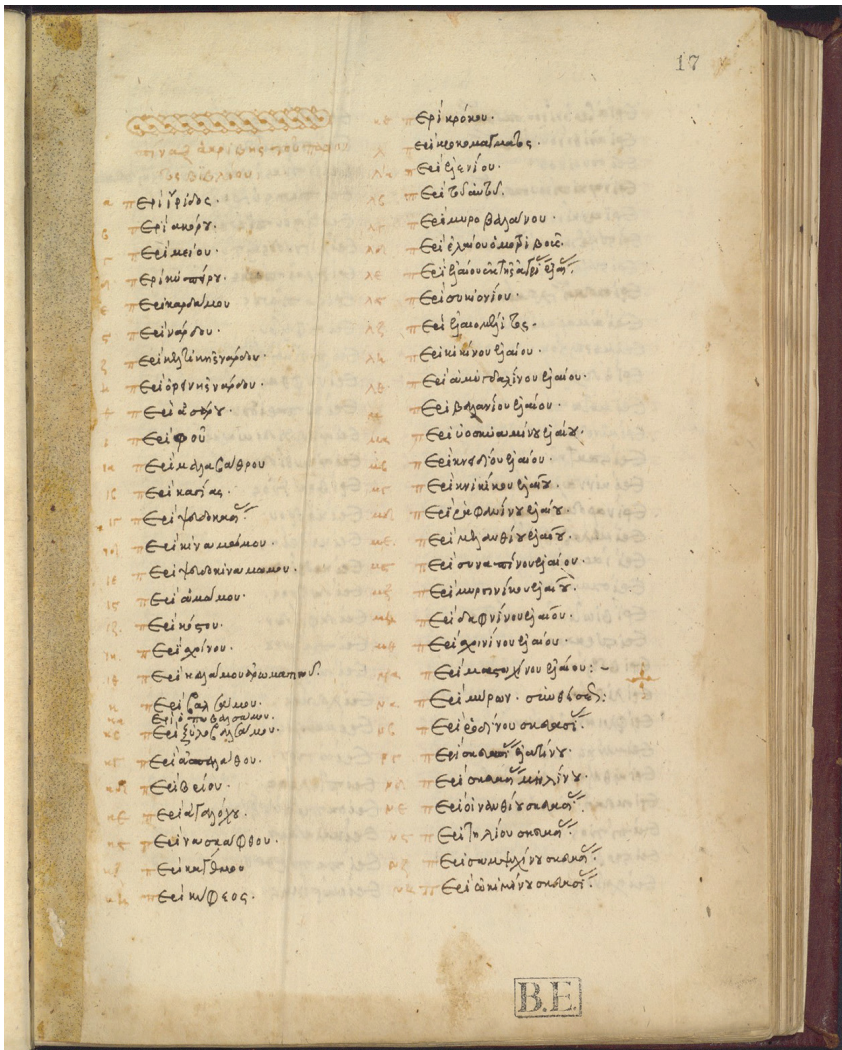 17
πίναξ ἀκριβὴς τοῦ
βιβλίου
α Περὶ ἴριδος.
β Περὶ ἀκόρου.
γ Περὶ μείου.
δ Περὶ κυπέρου.
ε Περὶ καρδαμώμου
ς Περὶ νάρδου.
ζ Περὶ κελτικῆς νάρδου.
η Περὶ ὀρεινῆς νάρδου.
θ Περὶ ἀσάρου.
ι Περὶ φοῦ
ια Περὶ μαλαβάθρου
ιβ Περὶ κασίας.
ιγ Περὶ ψευδοκασί
ιδ Περὶ κιναμώμου.
ιε Περὶ ψευδοκιναμώμου.
ις Περὶ ἀμώμου.
ιζ Περὶ κόστου.
ιη Περὶ σχοίνου.
ιθ Περὶ καλάμου ἀρωματικοῦ.
κ Περὶ βαλσάμου.
κα Περὶ ὀποβαλσάμου.
κβ Περὶ ξυλοβαλσάμου.
κγ Περὶ ἀσπαλάθου.
κδ Περὶ βρύου.
κε Περὶ ἀγαλόχου.
κς Περὶ νασκάφθου.
κζ Περὶ καγκάμου
κη Περὶ κύφεος.
κθ Περὶ κρόκου.
λ Περὶ κροκομάγματος.
λα Περὶ ἑλενίου.
λβ Περὶ τοῦ αὐτοῦ.
λγ Περὶ μυροβαλάνου.
λδ Περὶ ἐλαίου ὀμοτριβοῦς.
λε Περὶ ἐλαίου ἐκ τῆς ἀγρί ἐλαί
λς Περὶ συκιονίου.
λζ Περὶ ἐλαιομέλιτος.
λη Περὶ κικίνου ἐλαίου.
λθ Περὶ ἀμυγδαλίνου ἐλαίου.
μ Περὶ βαλανίου ἐλαίου.
μα Περὶ ὑοσκυαμίνου ἐλαίου.
μβ Περὶ κνιδίου ἐλαίου.
μγ Περὶ κνικίνου ἐλαίου.
μδ Περὶ ῥαφανίνου ἐλαίου.
με Περὶ μελανθίου ἐλαίου.
μς Περὶ συναπίνου ἐλαίου.
μζ Περὶ μυρσινίνου ἐλαίου.
μη Περὶ δαφνίνου ἐλαίου.
μθ Περὶ σχινίνου ἐλαίου.
Περὶ μαστιχίνου ἐλαίου:~
να Περὶ μύρων.
νβ Περὶ ῥοδίνου σκευασί
νγ Περὶ σκευασί ἐλατίνου.
νδ Περὶ σκευασί μηλίνου.
νε Περὶ οἰνανθίνου σκευασί
νς Περὶ τηλίνου σκευασί
νζ Περὶ σαμψυχίνου σκευασί
νη Περὶ ὠκιμίνου σκευασί
B.E.